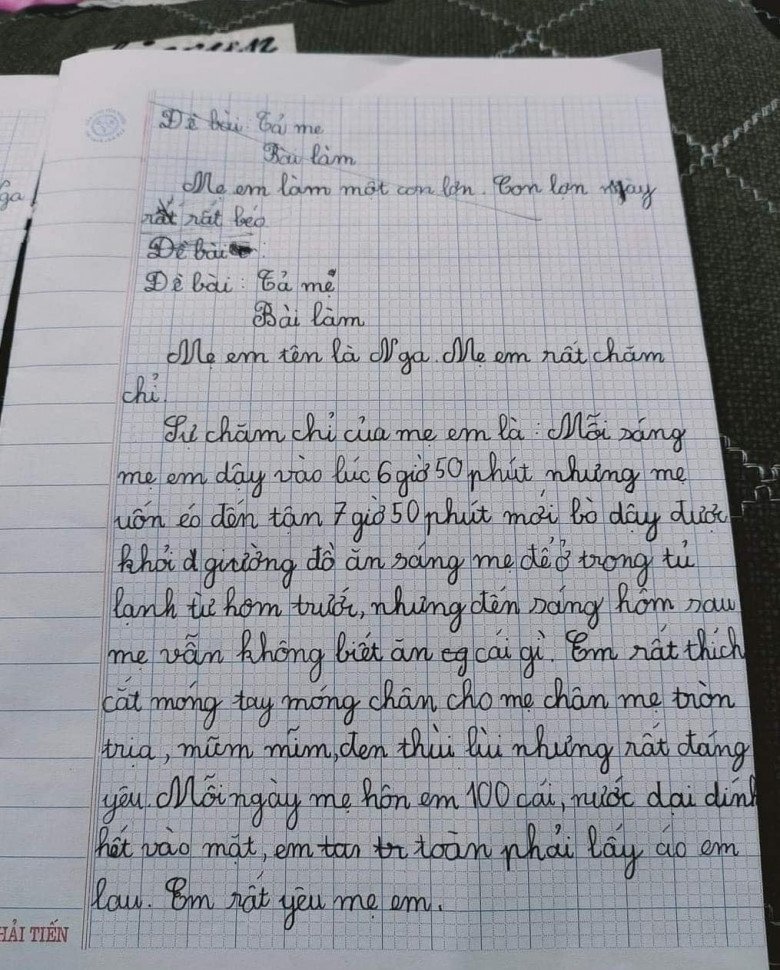 Đề bài: Tả mẹ
Bài làm
Mẹ em làm một con lợn. Con lợn này
rất rất béo
Đề bài
Đề bài: Tả mẹ
Bài làm
Mẹ em tên là Nga. Mẹ em rất chăm
chỉ.
Sự chăm chỉ của mẹ em là: Mỗi sáng
mẹ em dậy vào lúc 6 giờ 50 phút nhưng mẹ
uốn éo đến tận 7 giờ 50 phút mới bò dậy được
khỏi giường đồ ăn sáng mẹ để ở trong tủ
lạnh từ hôm trước, nhưng đến sáng hôm sau
mẹ vẫn không biết ăn cái gì. Em rất thích
cắt móng tay móng chân cho mẹ chân mẹ tròn
trịa, mũm mĩm, đen thùi lùi nhưng rất đáng
yêu. Mỗi ngày mẹ hôn em 100 cái, nước dãi dính
hết vào mặt, em toàn phải lấy áo em
lau. Em rất yêu mẹ em.
HẢI TIẾN